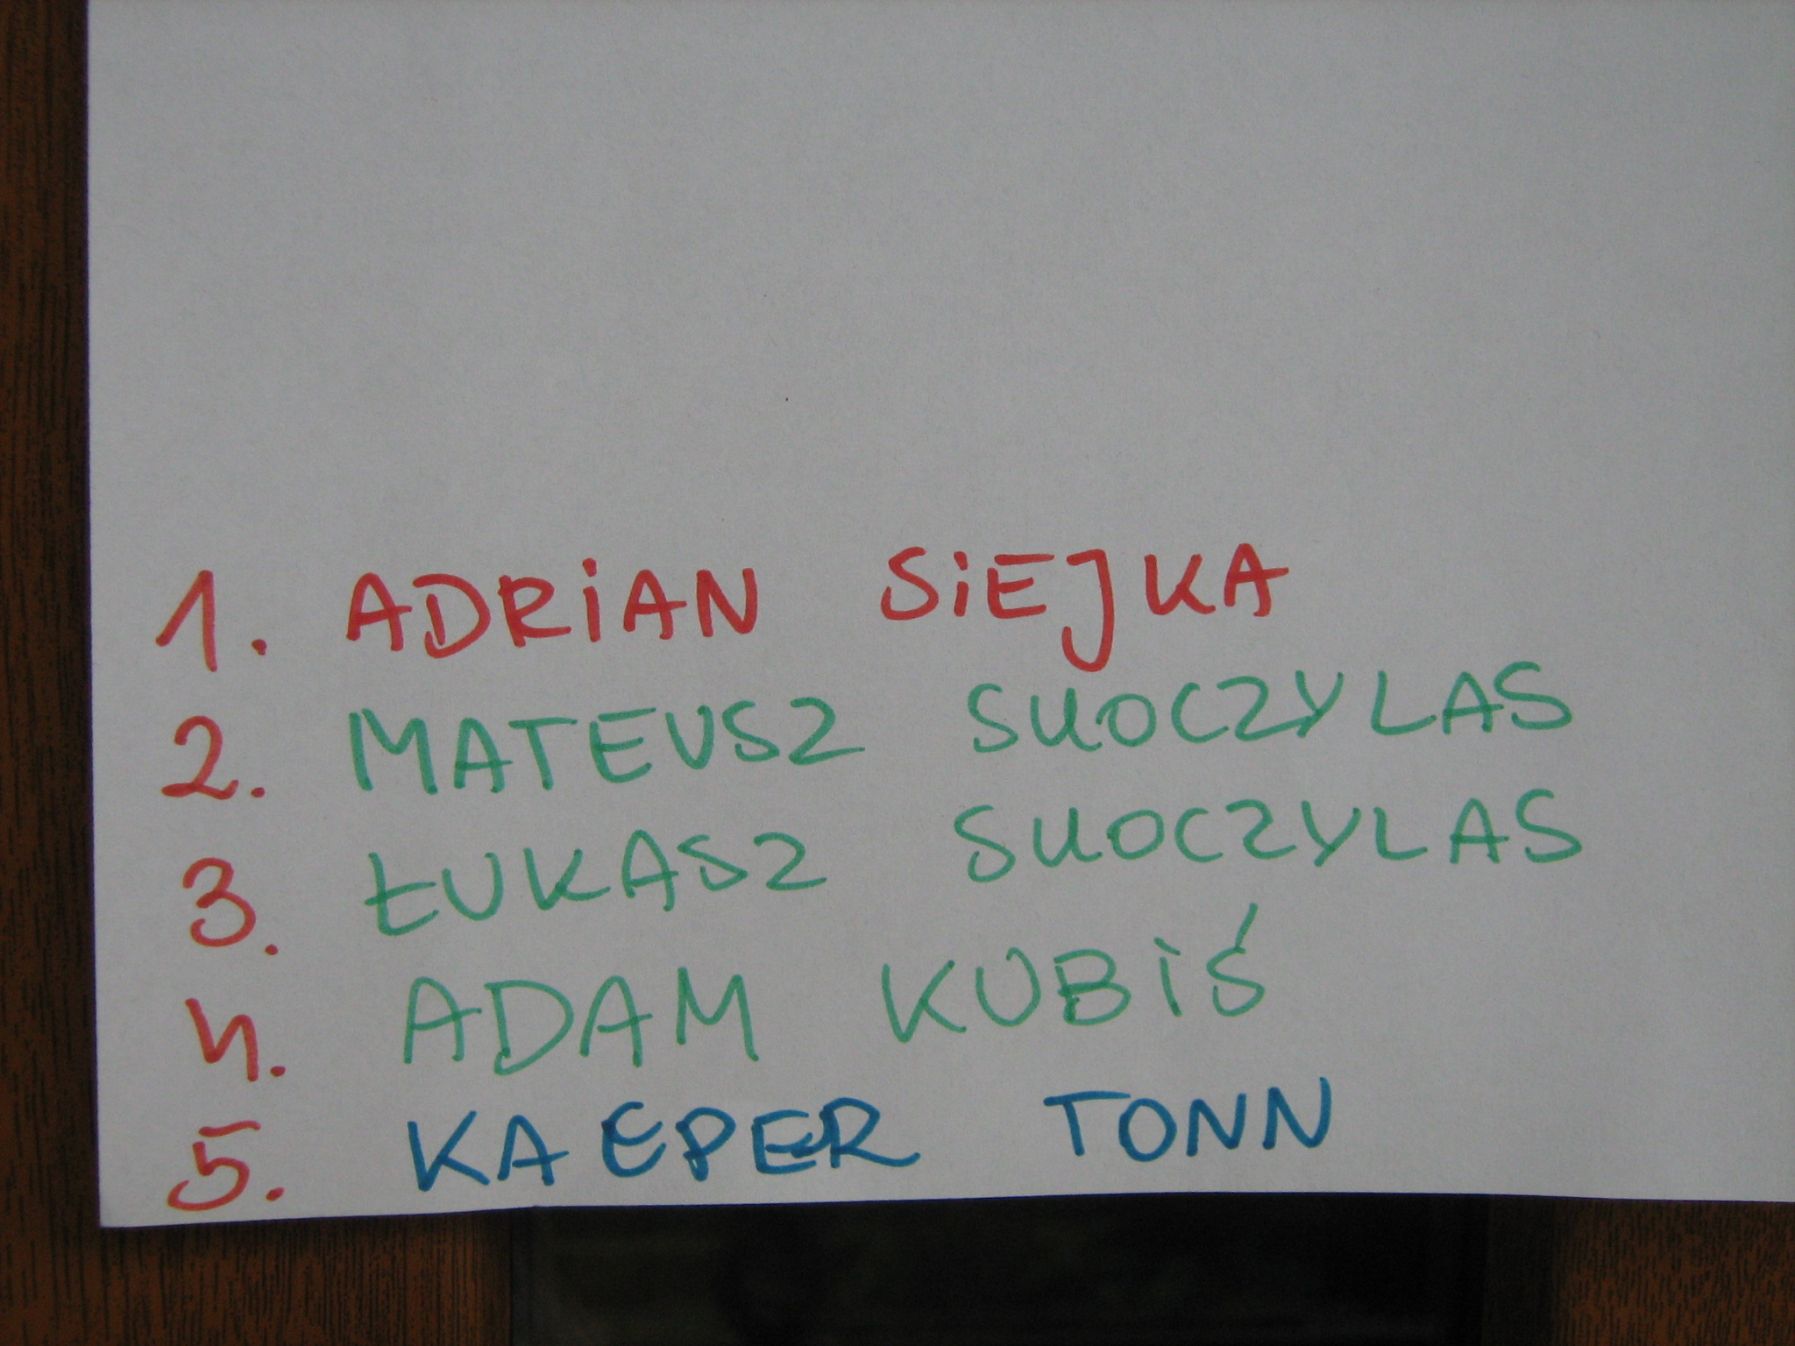 1. ADRIAN SIEJKA
2. MATEUSZ SKOCZYLAS
3. ŁUKASZ SKOCZYLAS
4. ADAM KUBIŚ
5. KACPER TONN